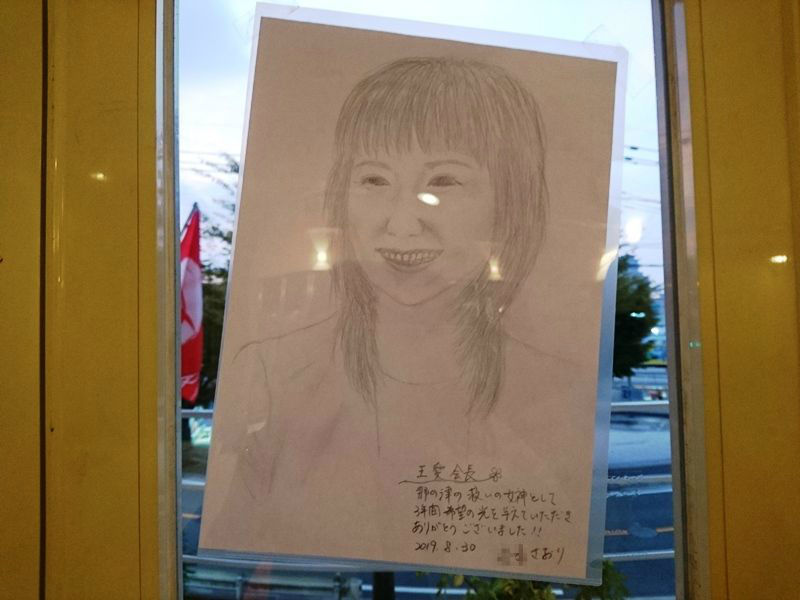 王愛会長
都の津の救いの女神として
3年間希望の光を与えていただき
ありがとうございました!!
2019.8.30 さおり